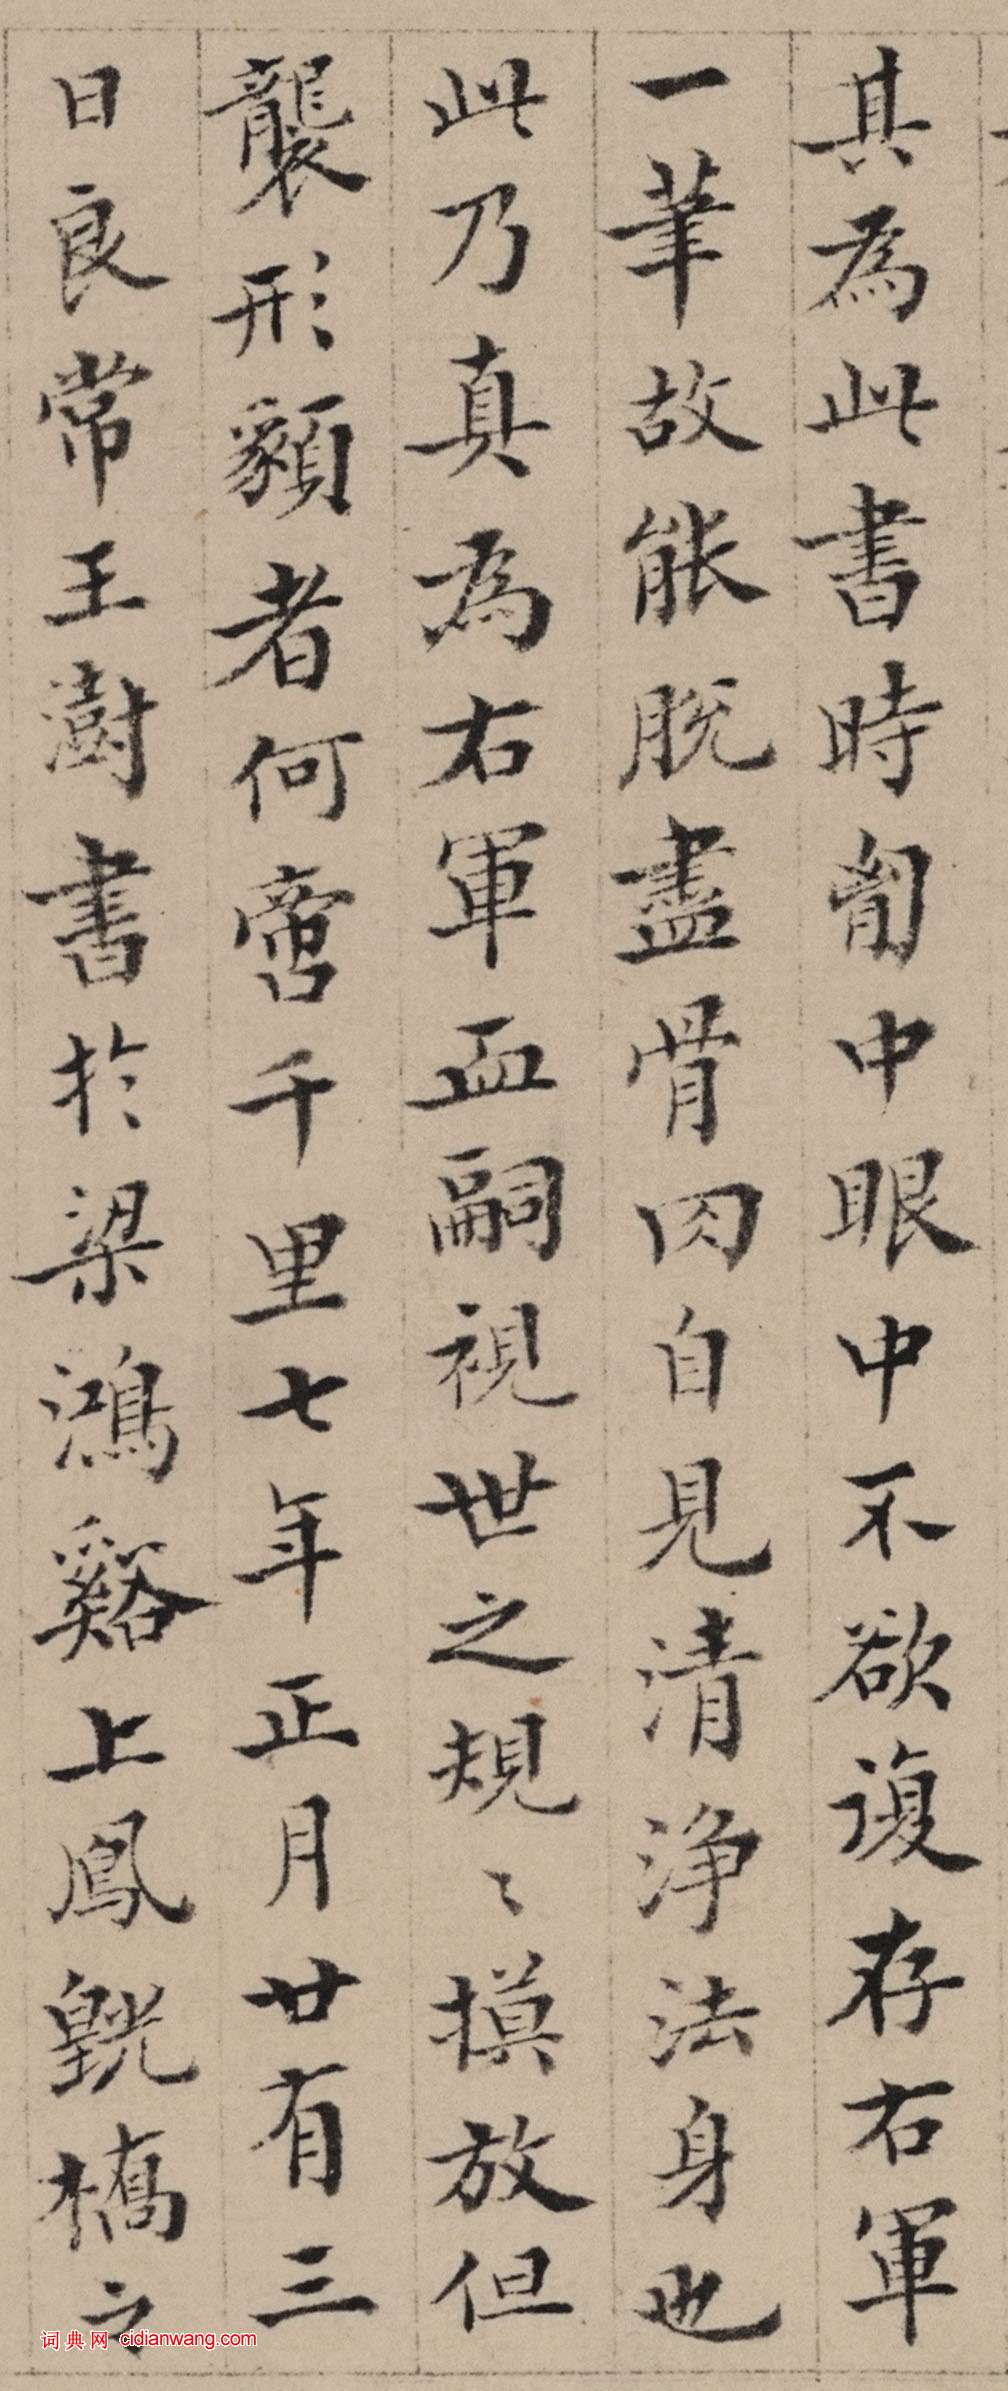 其為此書時匈中眼中不欲復存右軍
一筆故能脫盡骨肉自見清淨法身也
此乃真為右軍血嗣視世之規〻摸放但
襲形額者何啻千里七年正月廿有三
日良常王澍書於梁鴻谿上鳳皝橋之
词典网 cidianwang.com